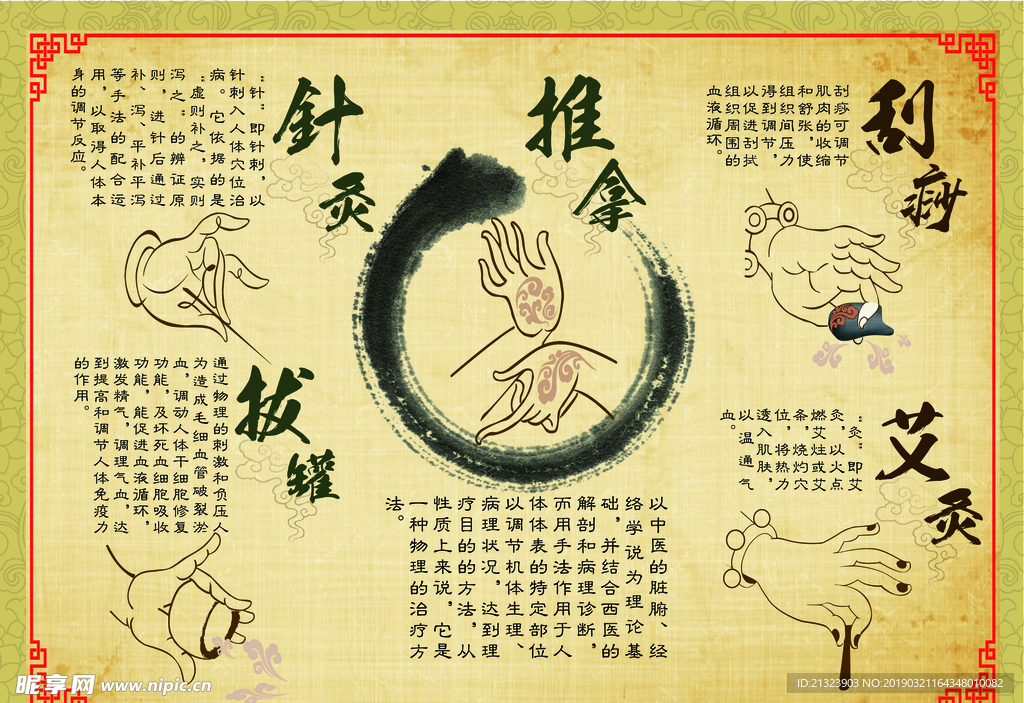 刮痧
刮痧可调节
肌肉的收缩
和舒张，使
组织间压力
得到调节，
以促进刮拭
组织周围的
血液循环。
推拿
以中医的脏腑、经
络学说为理论基
础，并结合西医的
解剖和病理诊断，
而用手法作用于人
体体表的特定部位
以调节机体生理、
病理状况，达到理
疗目的的方法，从
性质上来说，它是
一种物理的治疗方
法。
針灸
“针”即针刺，以
针刺入人体穴位治
病。它依据的是
“虚则补之，实则
泻之”的辨证原
则，进针后通过
补、泻、平补平泻
等手法的配合运
用，以取得人体本
身的调节反应。
艾灸
“灸”即艾
灸，以火点
燃艾炷或艾
条，烧灼穴
位，将热力
透入肌肤，
以温通气
血。
拔罐
通过物理的刺激和负压人
为造成毛细血管破裂淤
血，调动人体干细胞修复
功能，及坏死血细胞吸收
功能，能促进血液循环，
激发精气，调理气血，达
到提高和调节人体免疫力
的作用。
昵享网 www.nipic.cn
ID:21323903 NO:20190321164348010082